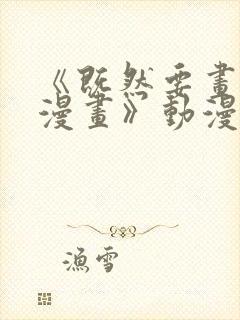 《既然要畫
漫畫》動漫
漁雪